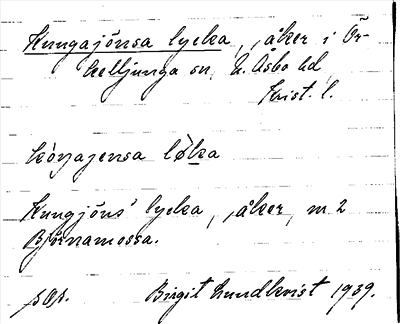 Kungajönsa lycka, åker i Ör-
kelljunga sn, N. Åsbo hd,
Krist. l.
kòŋajensa løka
Kungjöns' lycka, åker, m 2
Björnamossa.
Birgit Lundkvist 1939.